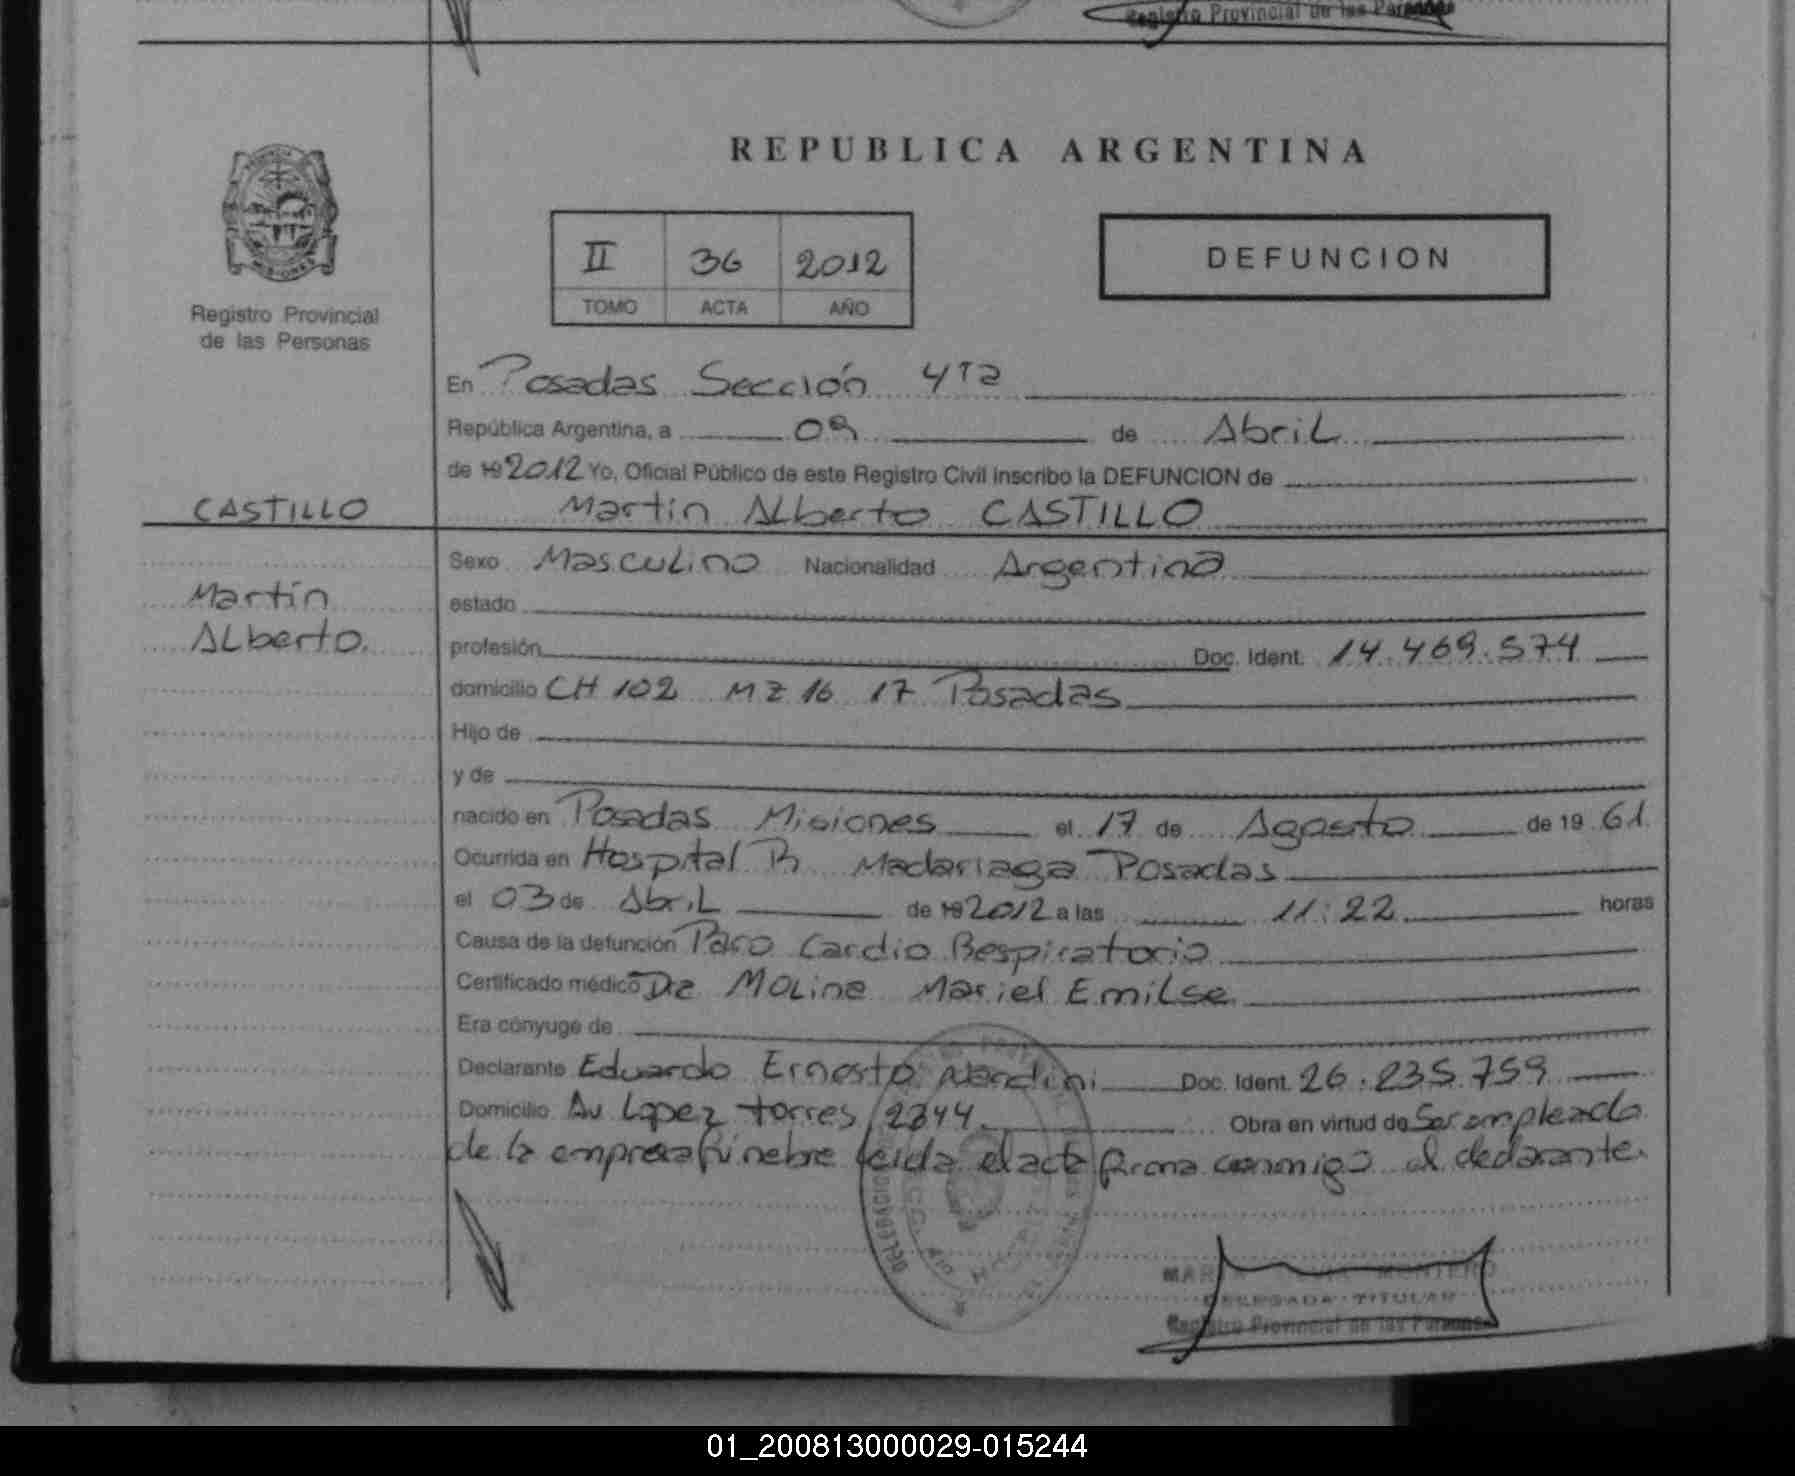 Registro Provincial de las Personas
REPUBLICA ARGENTINA
II 36 2012
TOMO ACTA AÑO
DEFUNCION
MISIONES
Registro Provincial
de las Personas
En Posadas Sección 4Ta
República Argentina, a 09 de Abril
de 19 2012 Yo, Oficial Público de este Registro Civil inscribo la DEFUNCION de
CASTILLO
Martin Alberto CASTILLO
Martín
Alberto.
Sexo Masculino Nacionalidad Argentina
estado
profesión Doc. Ident. 14.469.574
domicilio CH 102 MZ 16 17 Posadas
Hijo de
y de
nacido en Posadas Misiones el 17 de Agosto de 19 61
Ocurrida en Hospital R Madariaga Posadas
el 03 de Abril de 19 2012 a las 11:22 horas
Causa de la defunción Paro Cardio Respiratorio
Certificado médico Dra Molina Mariel Emilse
Era cónyuge de
Declarante Eduardo Ernesto Nardini Doc. Ident. 26.235.759
Domicilio Av Lopez torres 2344 Obra en virtud de Ser empleado
de la empresa fúnebre leida el acta firma conmigo el declarante.
MONTERO
DELEGADA TITULAR
Registro Provincial de las Personas
01_200813000029-015244